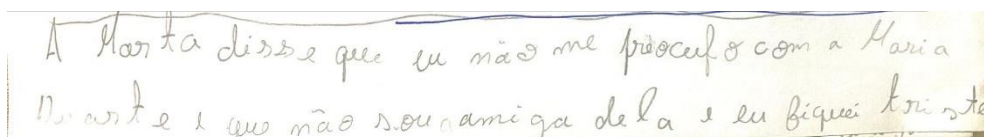 A Marta disse que eu não me preocupo com a Maria
Duarte e que não sou amiga dela e eu fiquei triste